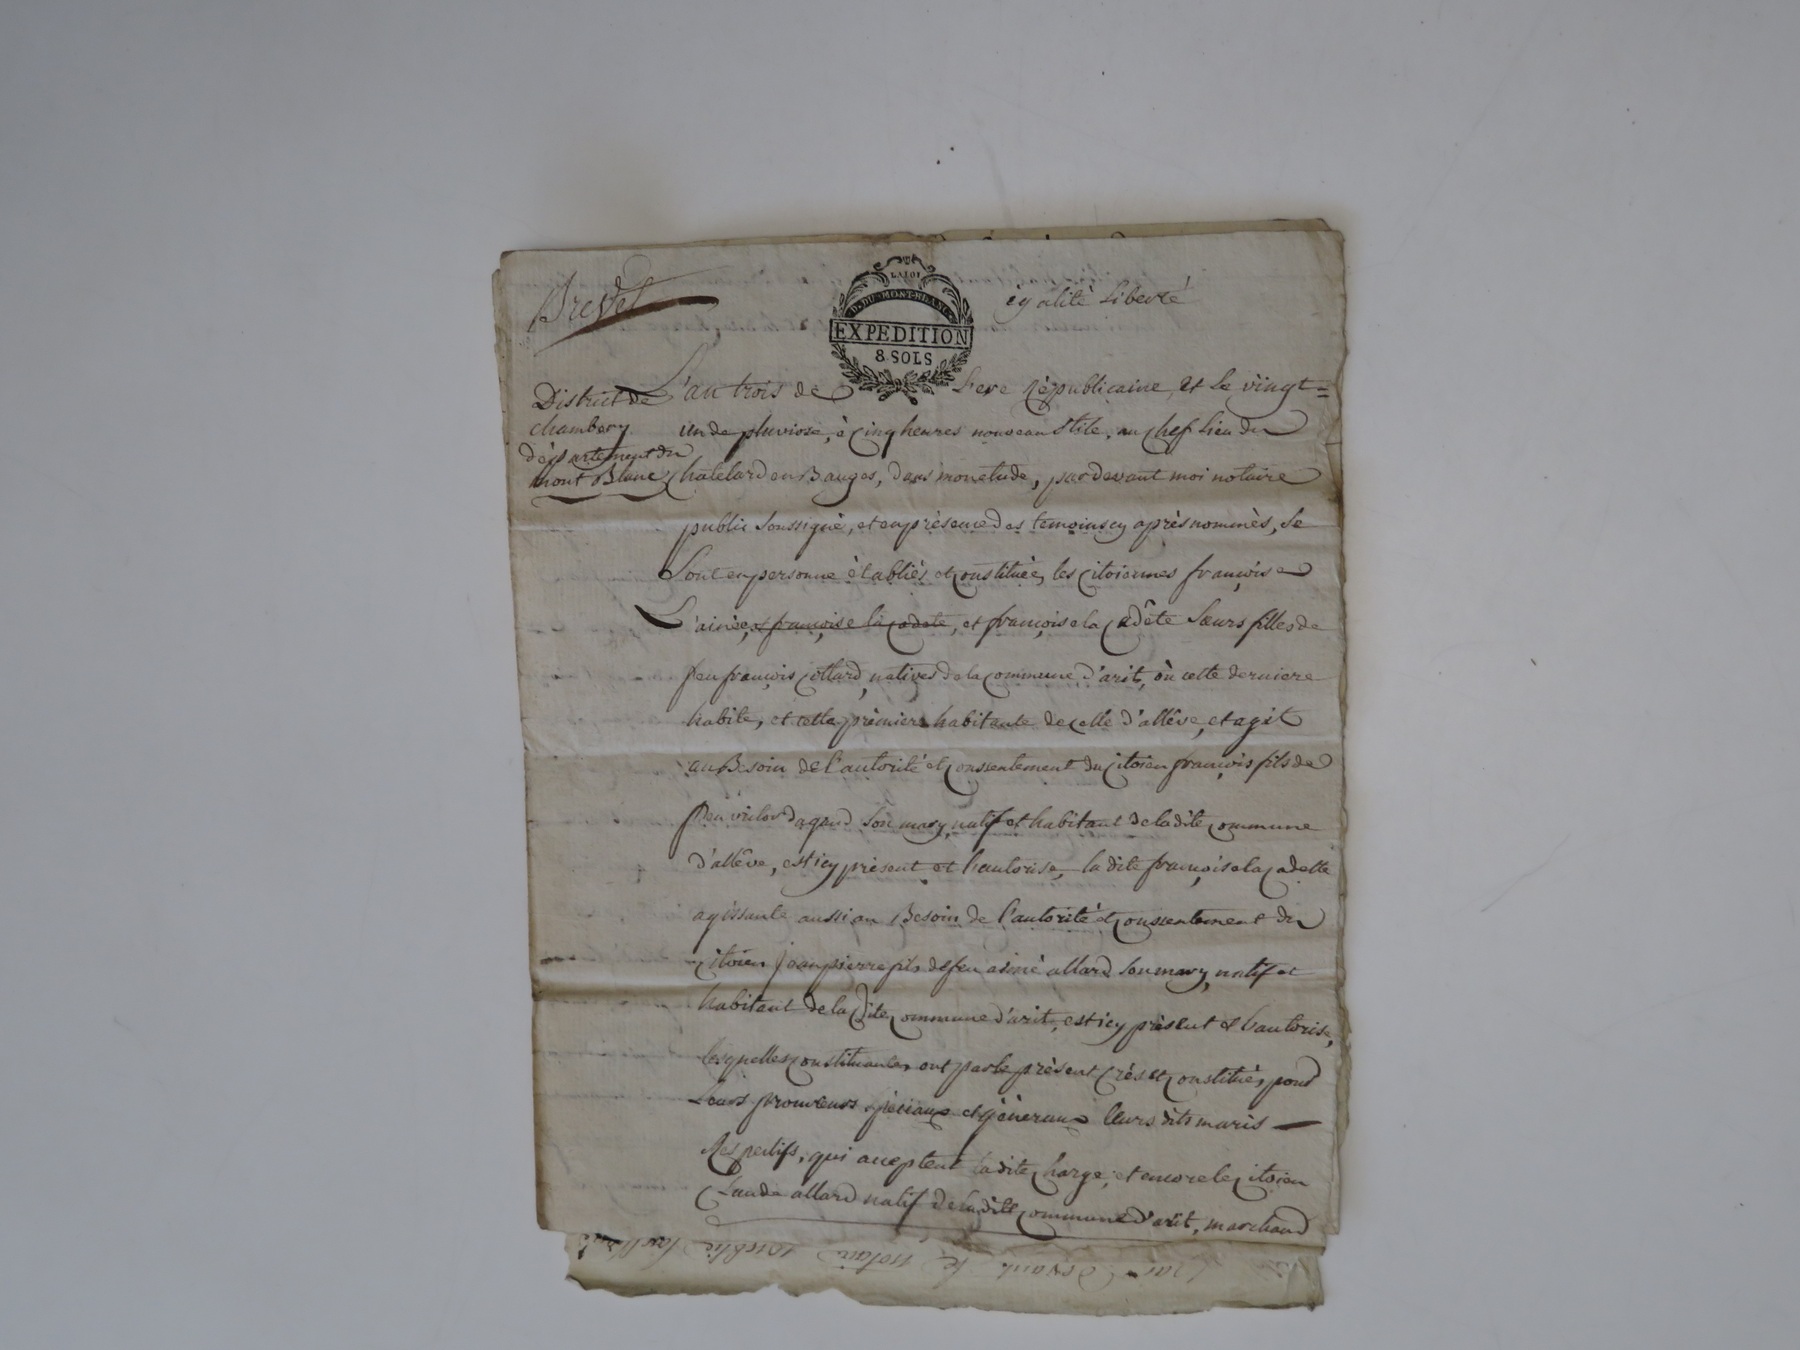 Brevet
LA LOI
D. DU MONT-BLANC
EXPEDITION
8 SOLS
ègalité Liberté
District de
chambery
département du
mont Blanc
L'an trois de L'ere Républicaine, et le vingt=
un de pluviose, à cinq heures nouveau stile, au chef lieu du
chatelard en Bauges, dans mon etude, pardevant moi notaire
public soussigné, et en présence des temoins cy après nommés, se
sont en personne ètabliés et constituée, les citoiennes françoise
L'ainée, et françoise la cadete, et françoise la cadête sœurs filles de
feu françois collard, natives de la commune d'arit, où cette derniere
habite, et cette prémiere habitante de celle d'allêve, et agit
au Besoin de l'autorité et consentement du citoien françois fils de
feu son mary, natif et habitant de la dite commune
d'allêve, est icy présent et l'autorise, la dite françoise la cadette
agissante aussi au Besoin de l'autorité et consentement du
citoien jean pierre fils de feu aimé allard son mary, natif et
habitant de la dite commune d'arit, est icy présent et l'autorise,
lesquelles constituantes ont par le présent créé et constitué, pour
Leurs procureurs spéciaux et généraux leurs dits maris
Respectifs, qui acceptent la dite charge, et encore le citoien
Claude allard natif de la dite commune d'arit, marchand
par devant le notaire public